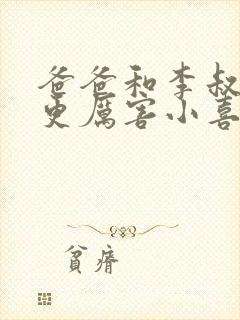 爸爸和李叔
更厲害小喜
貧瘠